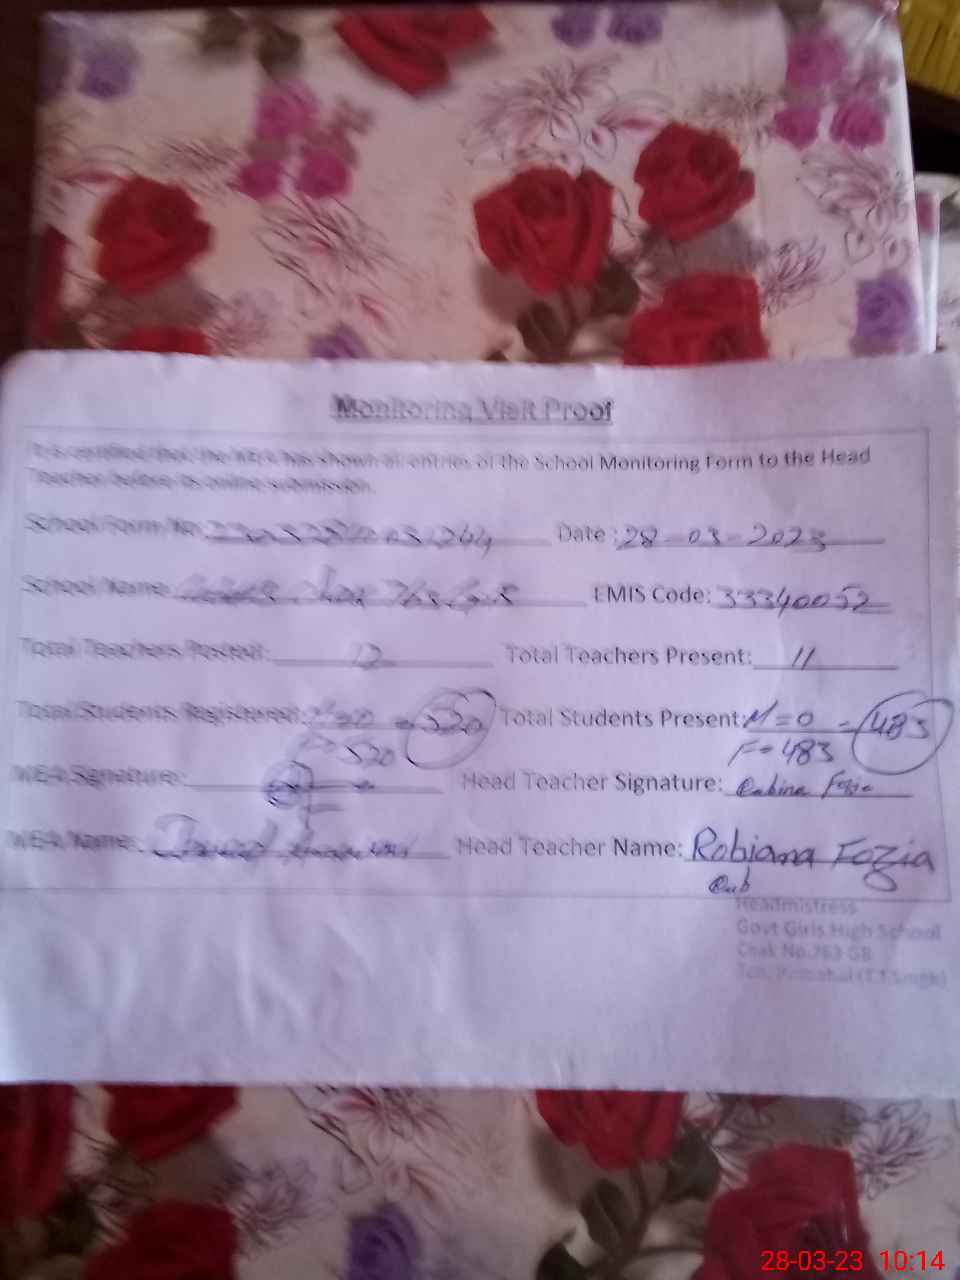 Monitoring Visit Proof
It is certified that the MEA has shown all entries of the School Monitoring Form to the Head
Teacher before its online submission.
School Form No. Date: 28-03-2023
School Name: EMIS Code: 33340052
Total Teachers Posted: 12 Total Teachers Present: 11
Total Students Registered: M=0 = 520 Total Students Present: M=0 = 483
F=520 F=483
MEA Signature: Head Teacher Signature: Rabina Fozia
MEA Name: Head Teacher Name: Robiana Fozia
Headmistress
Govt Girls High School
Chak No.763 GB
(T.T.Singh)
28-03-23 10:14